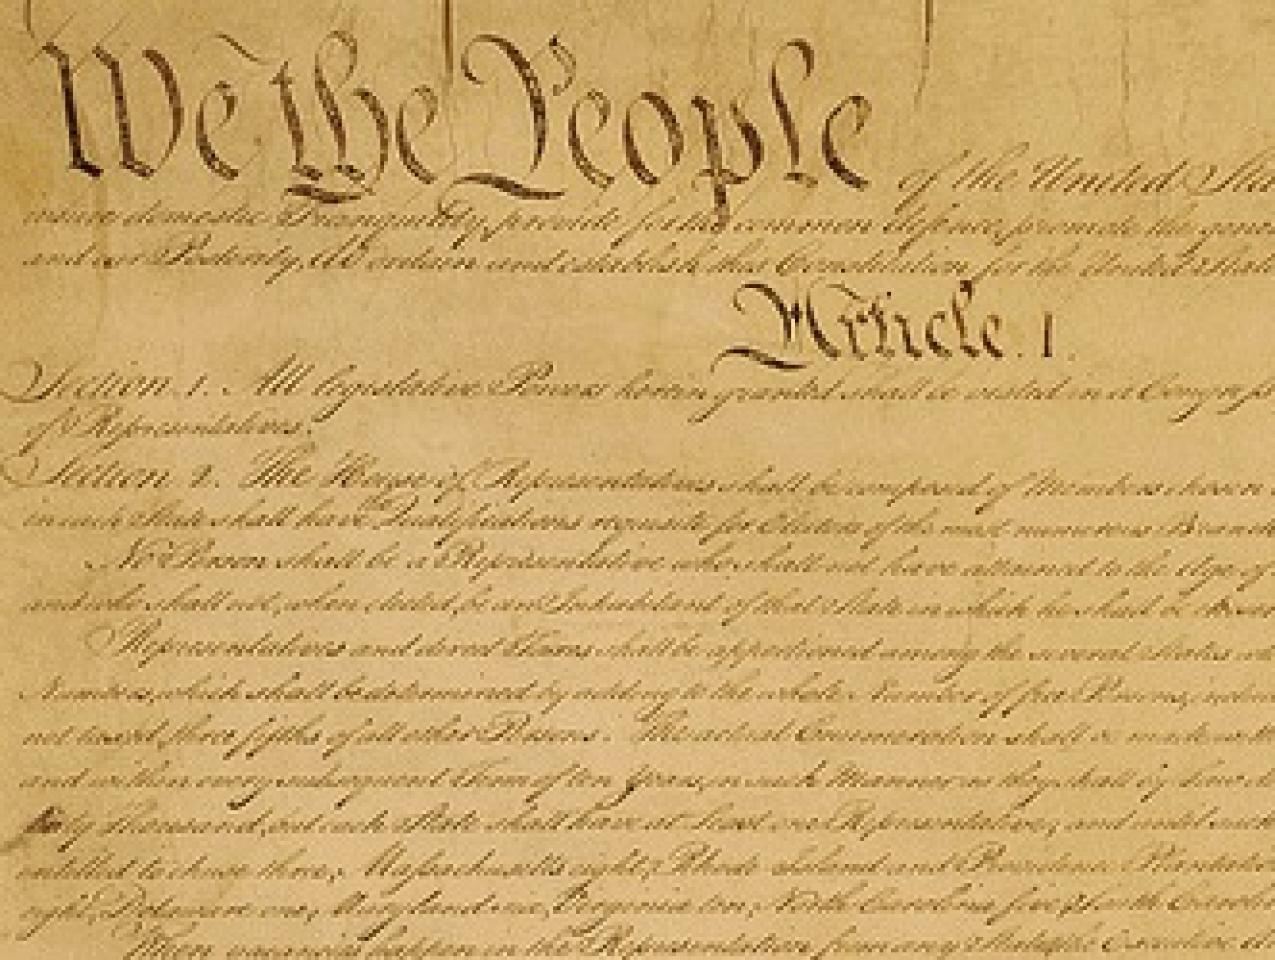 We the People of the United Sta
insure domestic Tranquility, provide for the common defence, promote the gene
and our Posterity, do ordain and establish this Constitution for the United State
Article. I.
Section. 1. All legislative Powers herein granted shall be vested in a Congress
of Representatives.
Section. 2. The House of Representatives shall be composed of Members chosen
in each State shall have the Qualifications requisite for Electors of the most numerous Branch
No Person shall be a Representative who shall not have attained to the Age of
and who shall not, when elected, be an Inhabitant of that State in which he shall be chosen
Representatives and direct Taxes shall be apportioned among the several States wh
Numbers, which shall be determined by adding to the whole Number of free Persons, inclu
not taxed, three fifths of all other Persons. The actual Enumeration shall be made with
and within every subsequent Term of ten Years, in such Manner as they shall by Law d
thirty Thousand, but each State shall have at Least one Representative; and until such
entitled to chuse three, Massachusetts eight, Rhode Island and Providence Plantatio
eight, Delaware one, Maryland six, Virginia ten, North Carolina five, South Carolin
When vacancies happen in the Representation from any State, the Executive A